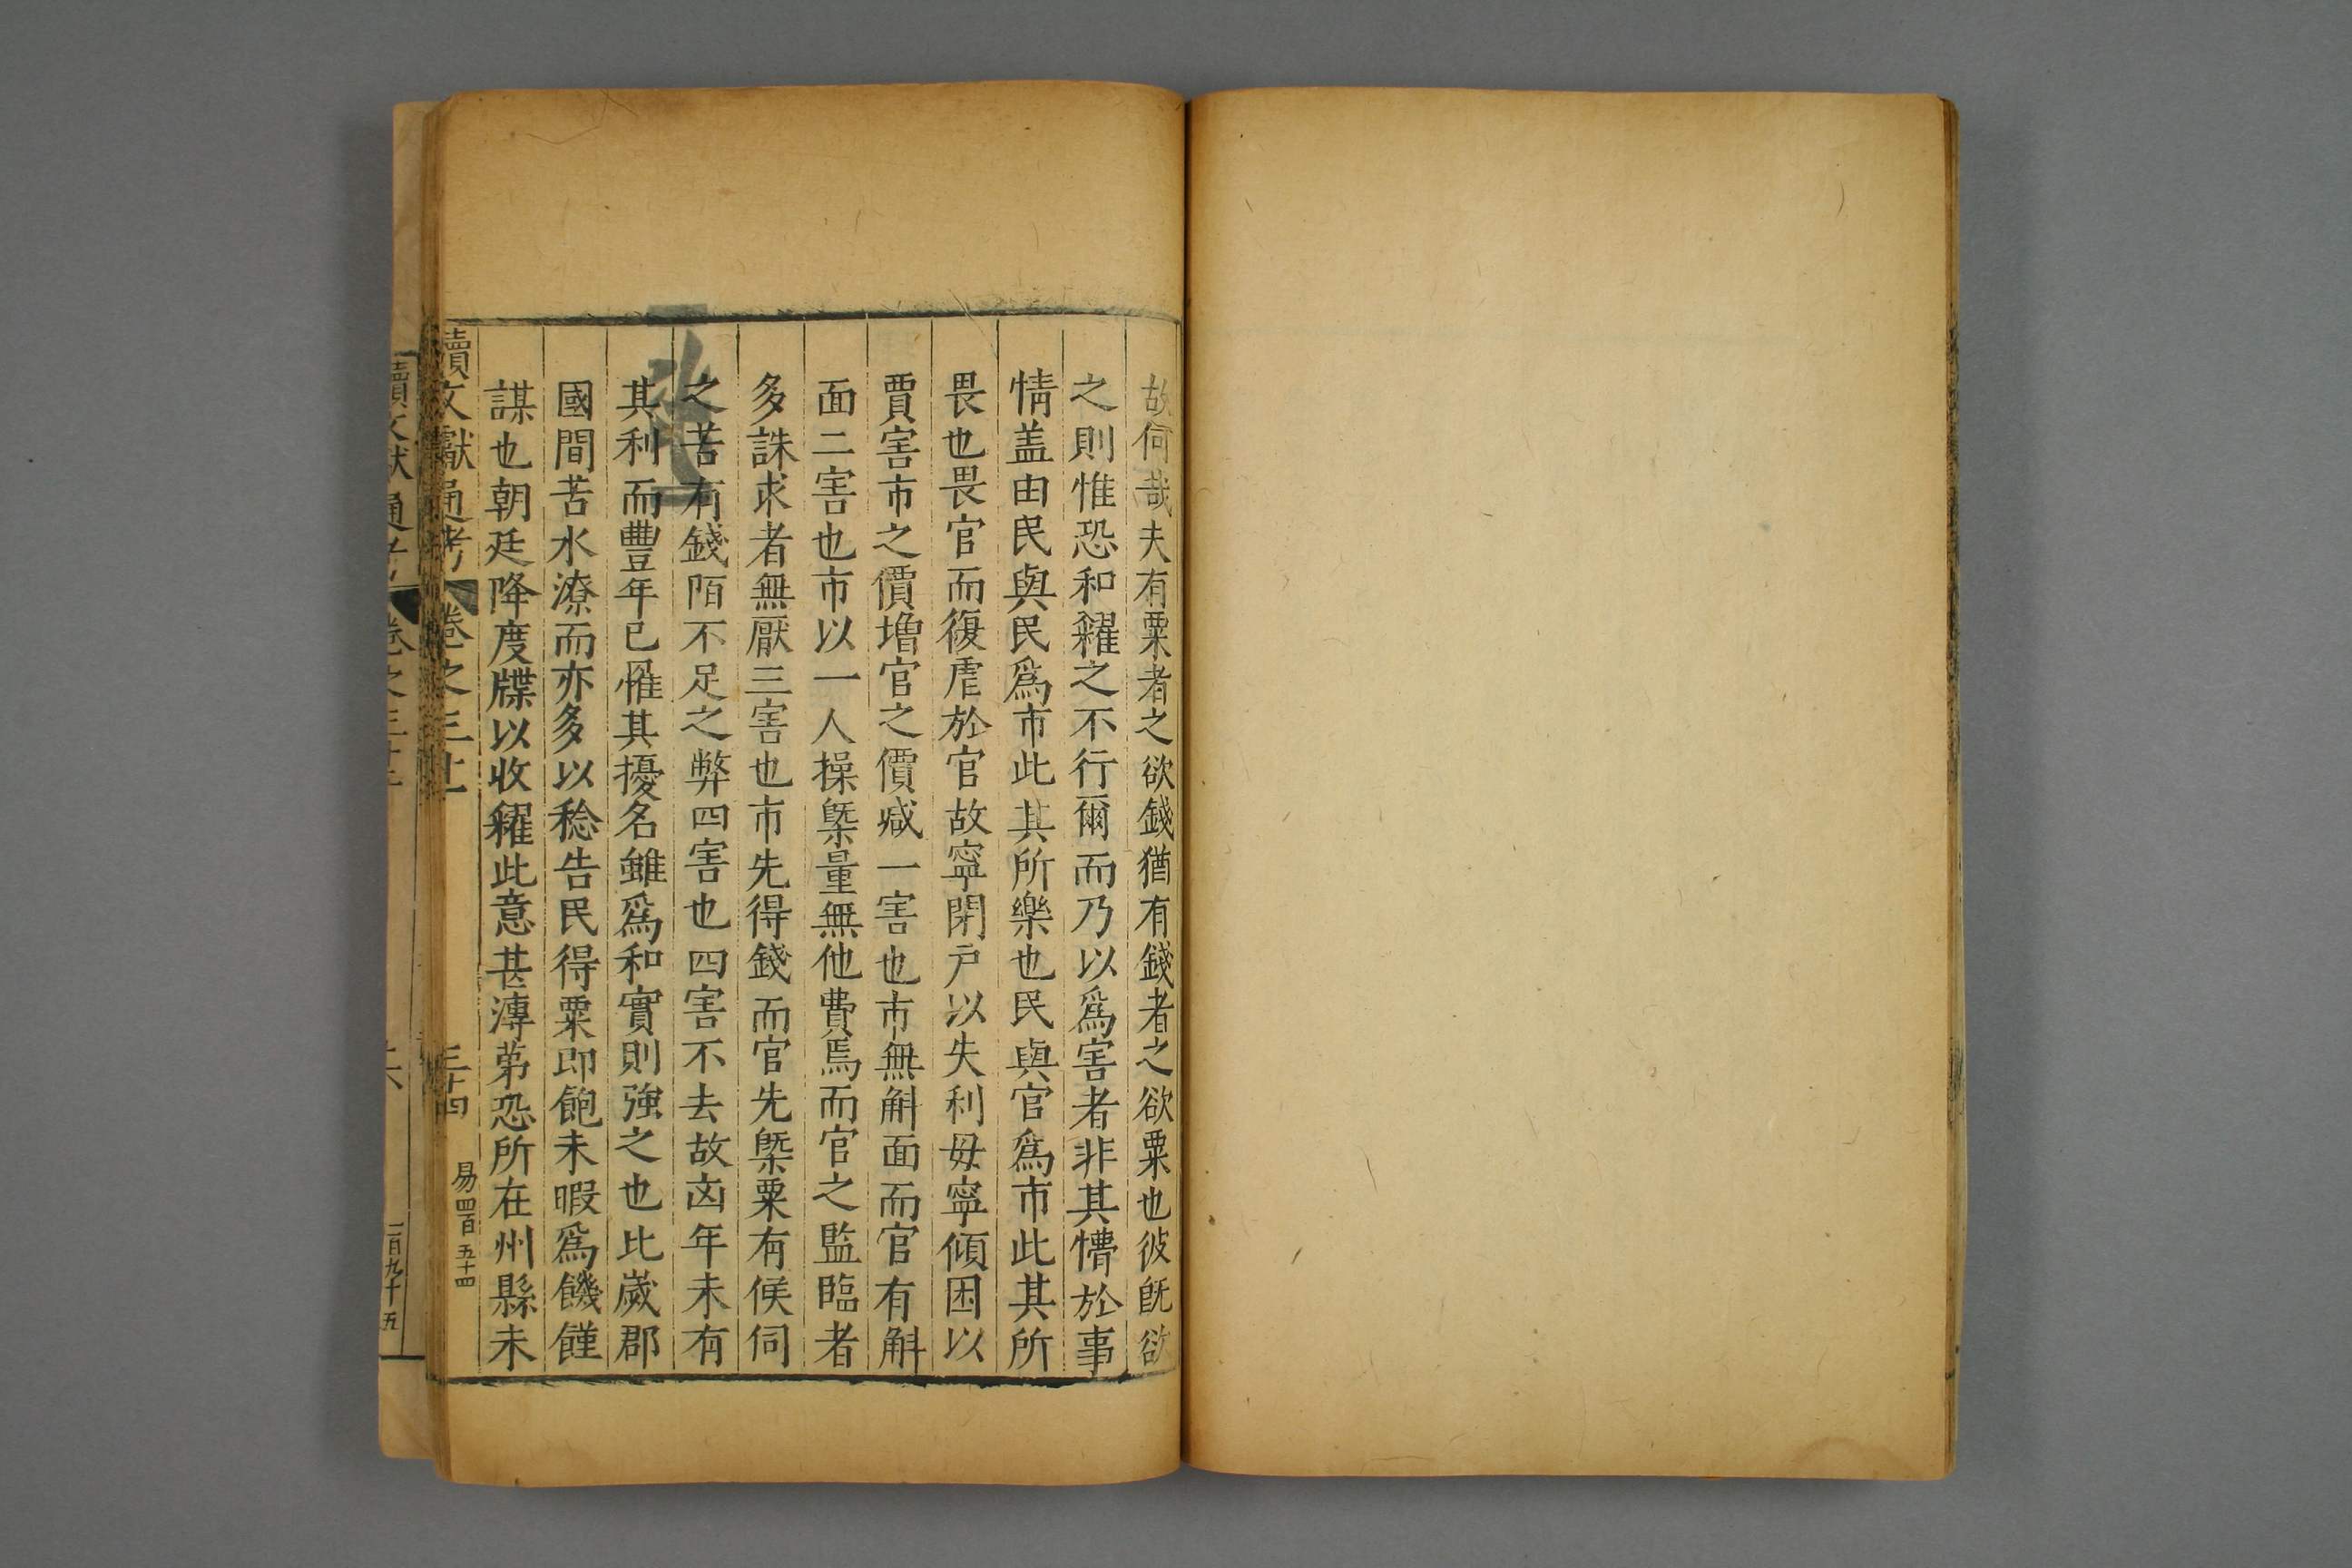 故何哉夫有粟者之欲錢猶有錢者之欲粟也彼旣欲
之則惟恐和糴之不行爾而乃以爲害者非其懵於事
情盖由民與民爲市此其所樂也民與官爲市此其所
畏也畏官而復虐於官故寧閉戶以失利毋寧傾囷以
賈害市之價增官之價減一害也市無斛面而官有斛
面二害也市以一人操槩量無他費焉而官之監臨者
多誅求者無厭三害也市先得錢而官先槩粟有候伺
之苦有錢陌不足之弊四害也四害不去故凶年未有
其利而豐年已罹其擾名雖爲和實則強之也比歲郡
國間苦水潦而亦多以稔告民得粟即飽未暇爲饑饉
謀也朝廷降度牒以收糴此意甚漙苐恐所在州縣未
續文獻通考 卷之三十 三十四 易四百五十四
續文獻通考 卷之三十 二百九十五